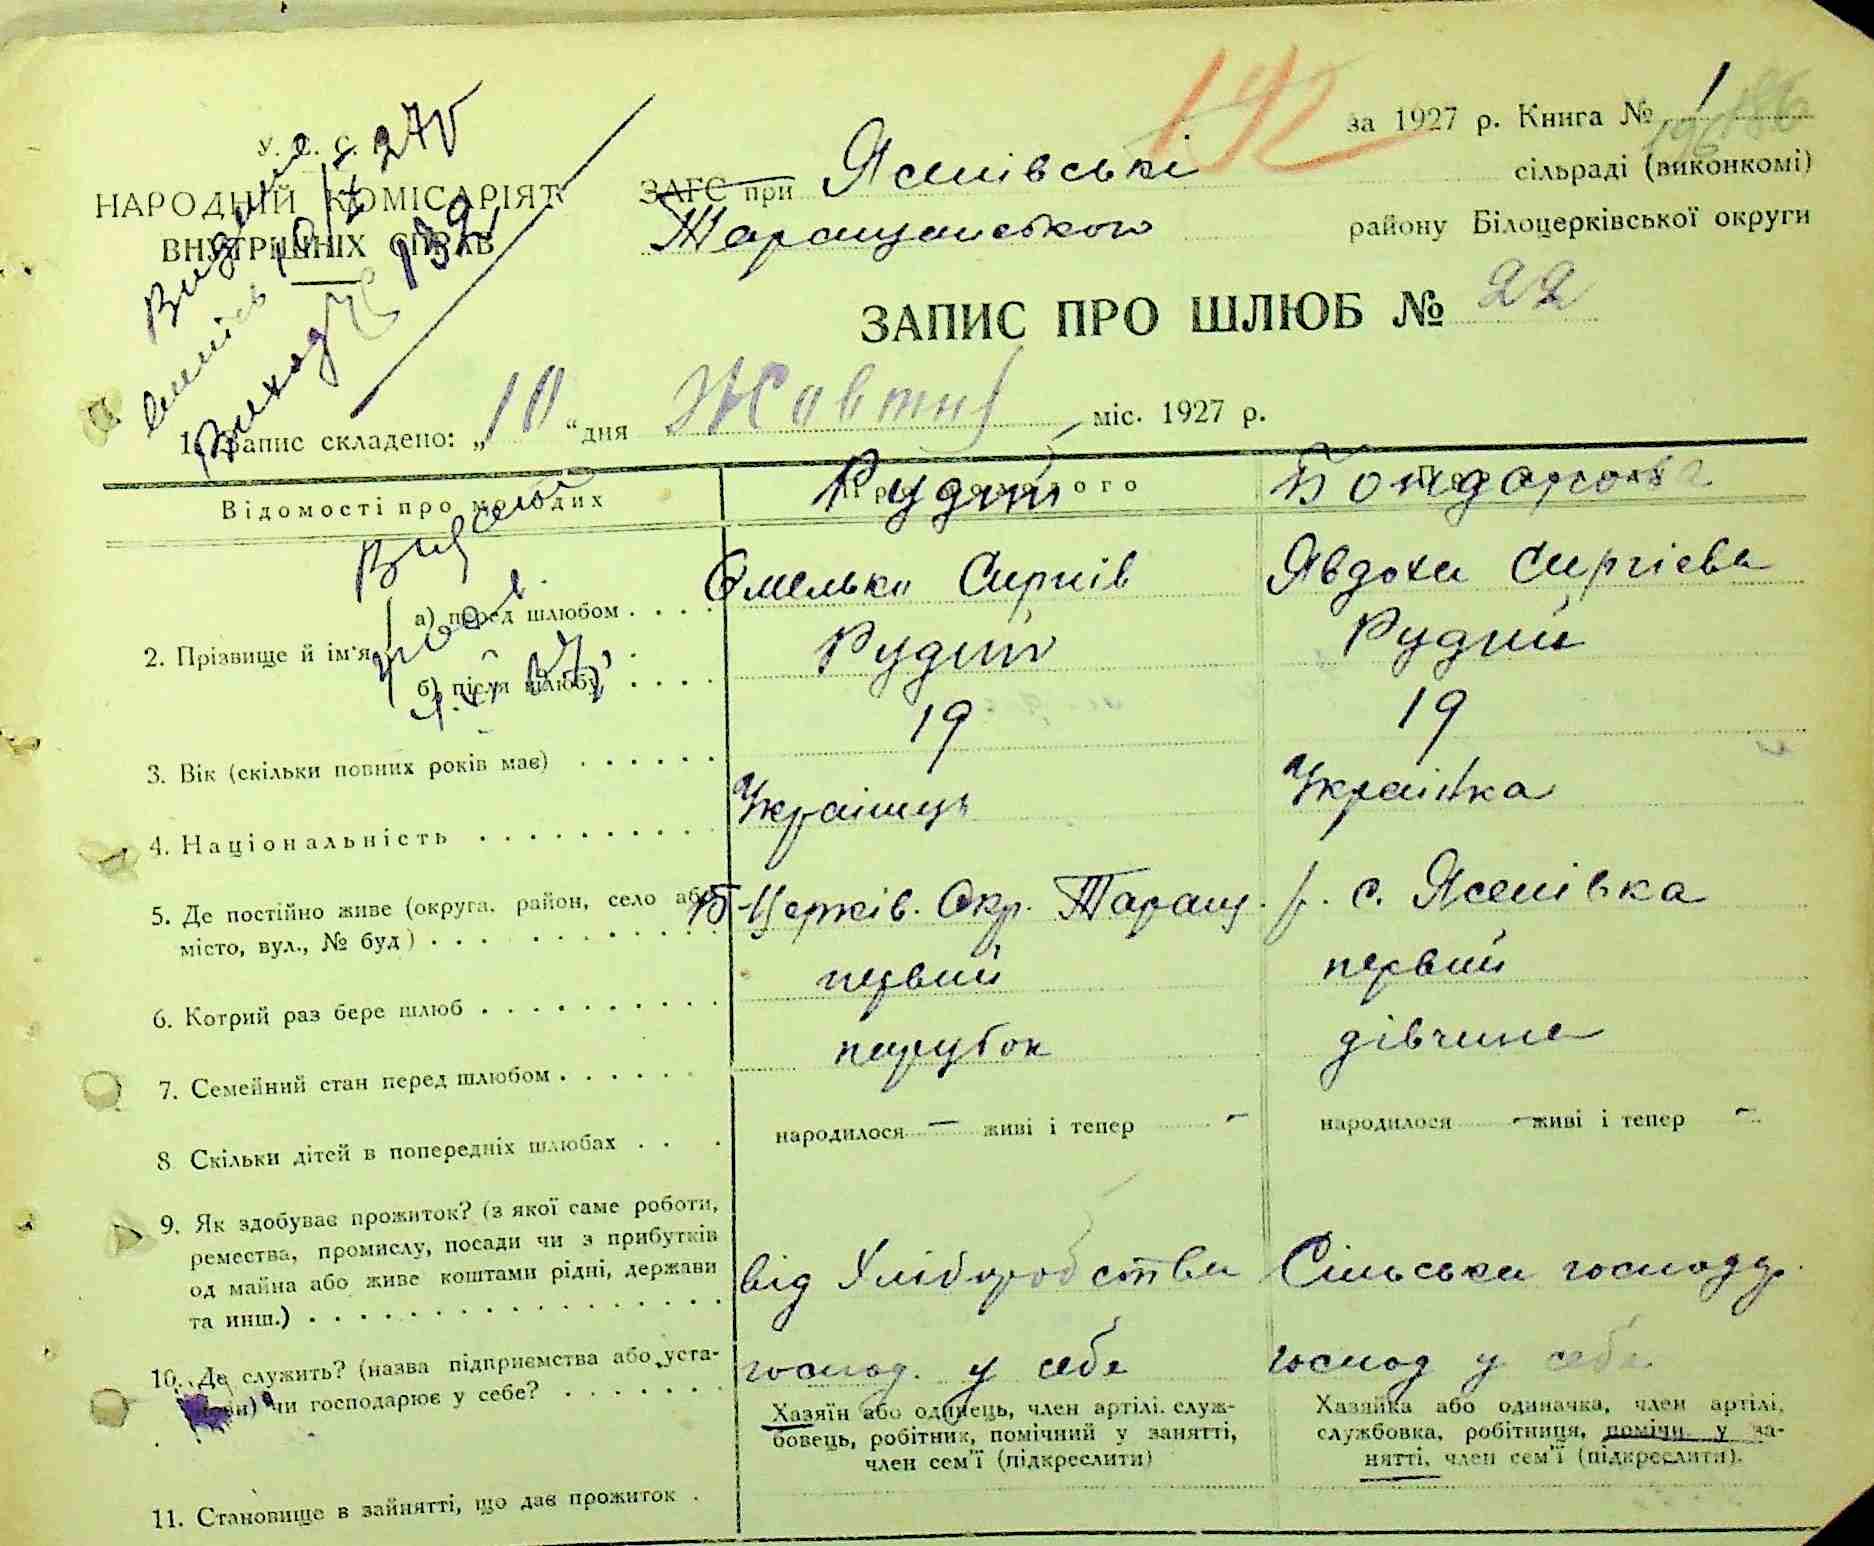 за 1927 р. Книга № 1
192
У. С. С.
НАРОДНІЙ КОМІСАРІЯТ
ВНУТРІШНІХ СПРАВ
ЗАГС при Ясенівські сільраді (виконкомі)
Таращанського району Білоцерківської округи
ЗАПИС ПРО ШЛЮБ № 22
1. Запис складено: „10“ дня Жовтня міс. 1927 р.
Відомості про молодих
Рудий
Бондарова
2. Прізвище й ім'я
а) перед шлюбом . . . . Омелько Сиргіїв Явдоха Сиргієва
б) після шлюбу . . . . Рудий Рудий
3. Вік (скільки повних років має) . . . . . . 19 19
4. Національність . . . . . . . . . Українець Українка
5. Де постійно живе (округа, район, село або
місто, вул., № буд) . . . . . . . . . . . Б-Церків. Окр. Таращ. р. с. Ясенівка
6. Котрий раз бере шлюб . . . . . . . . . первий первий
7. Семейний стан перед шлюбом . . . . . . парубок дівчина
8 Скільки дітей в попередніх шлюбах . . . народилося — живі і тепер - народилося - живі і тепер -
9. Як здобуває прожиток? (з якої саме роботи,
ремества, промислу, посади чи з прибутків
од майна або живе коштами рідні, держави
та инш.) . . . . . . . . . . . . . . . . від Хліборобства Сільська господр.
10. Де служить? (назва підприємства або уста-
нови) чи господарює у себе? . . . . . . . господ. у себе господ у себе
Хазяїн або одинець, член артілі. служ-
бовець, робітник, помічний у занятті,
член сем'ї (підкреслити)
Хазяйка або одиначка, член артілі,
службовка, робітниця, помічн. у за-
нятті, член сем'ї (підкреслити).
11. Становище в зайнятті, що дає прожиток .